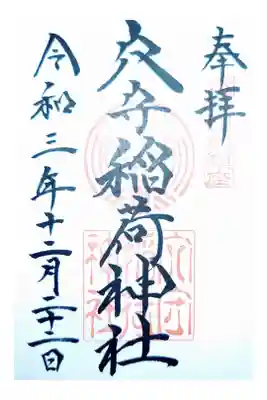 奉拝
穴守稲荷神社
令和三年十二月二十二日